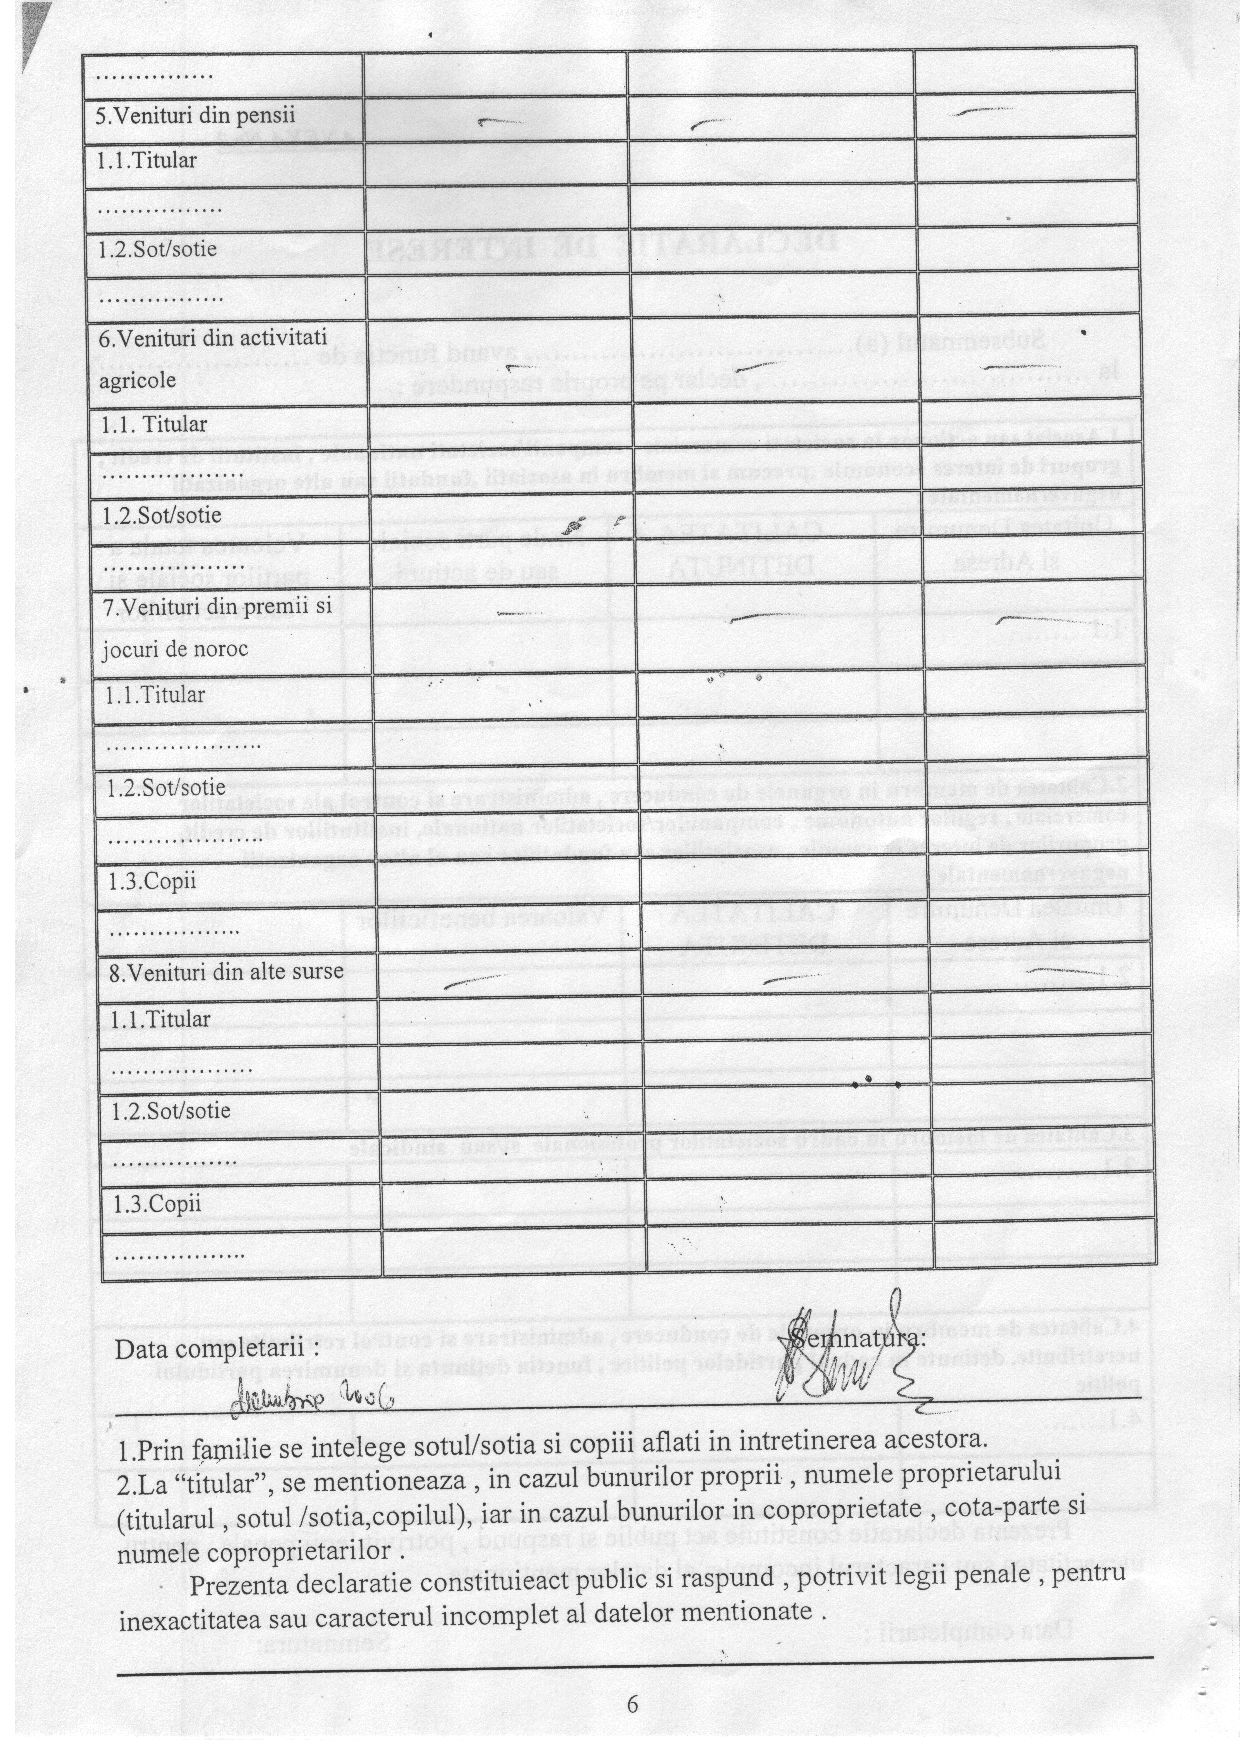 ……………
5.Venituri din pensii — — —
1.1.Titular
…………….
1.2.Sot/sotie
…………….
6.Venituri din activitati
agricole — — —
1.1. Titular
………………
1.2.Sot/sotie
………………
7.Venituri din premii si
jocuri de noroc — — —
1.1.Titular
………………..
1.2.Sot/sotie
………………..
1.3.Copii
……………...
8.Venituri din alte surse — — —
1.1.Titular
………………
1.2.Sot/sotie
…………….
1.3.Copii
……………..
Data completarii : Semnatura:
1.Prin familie se intelege sotul/sotia si copiii aflati in intretinerea acestora.
2.La “titular”, se mentioneaza , in cazul bunurilor proprii , numele proprietarului
(titularul , sotul /sotia,copilul), iar in cazul bunurilor in coproprietate , cota-parte si
numele coproprietarilor .
Prezenta declaratie constituieact public si raspund , potrivit legii penale , pentru
inexactitatea sau caracterul incomplet al datelor mentionate .
6